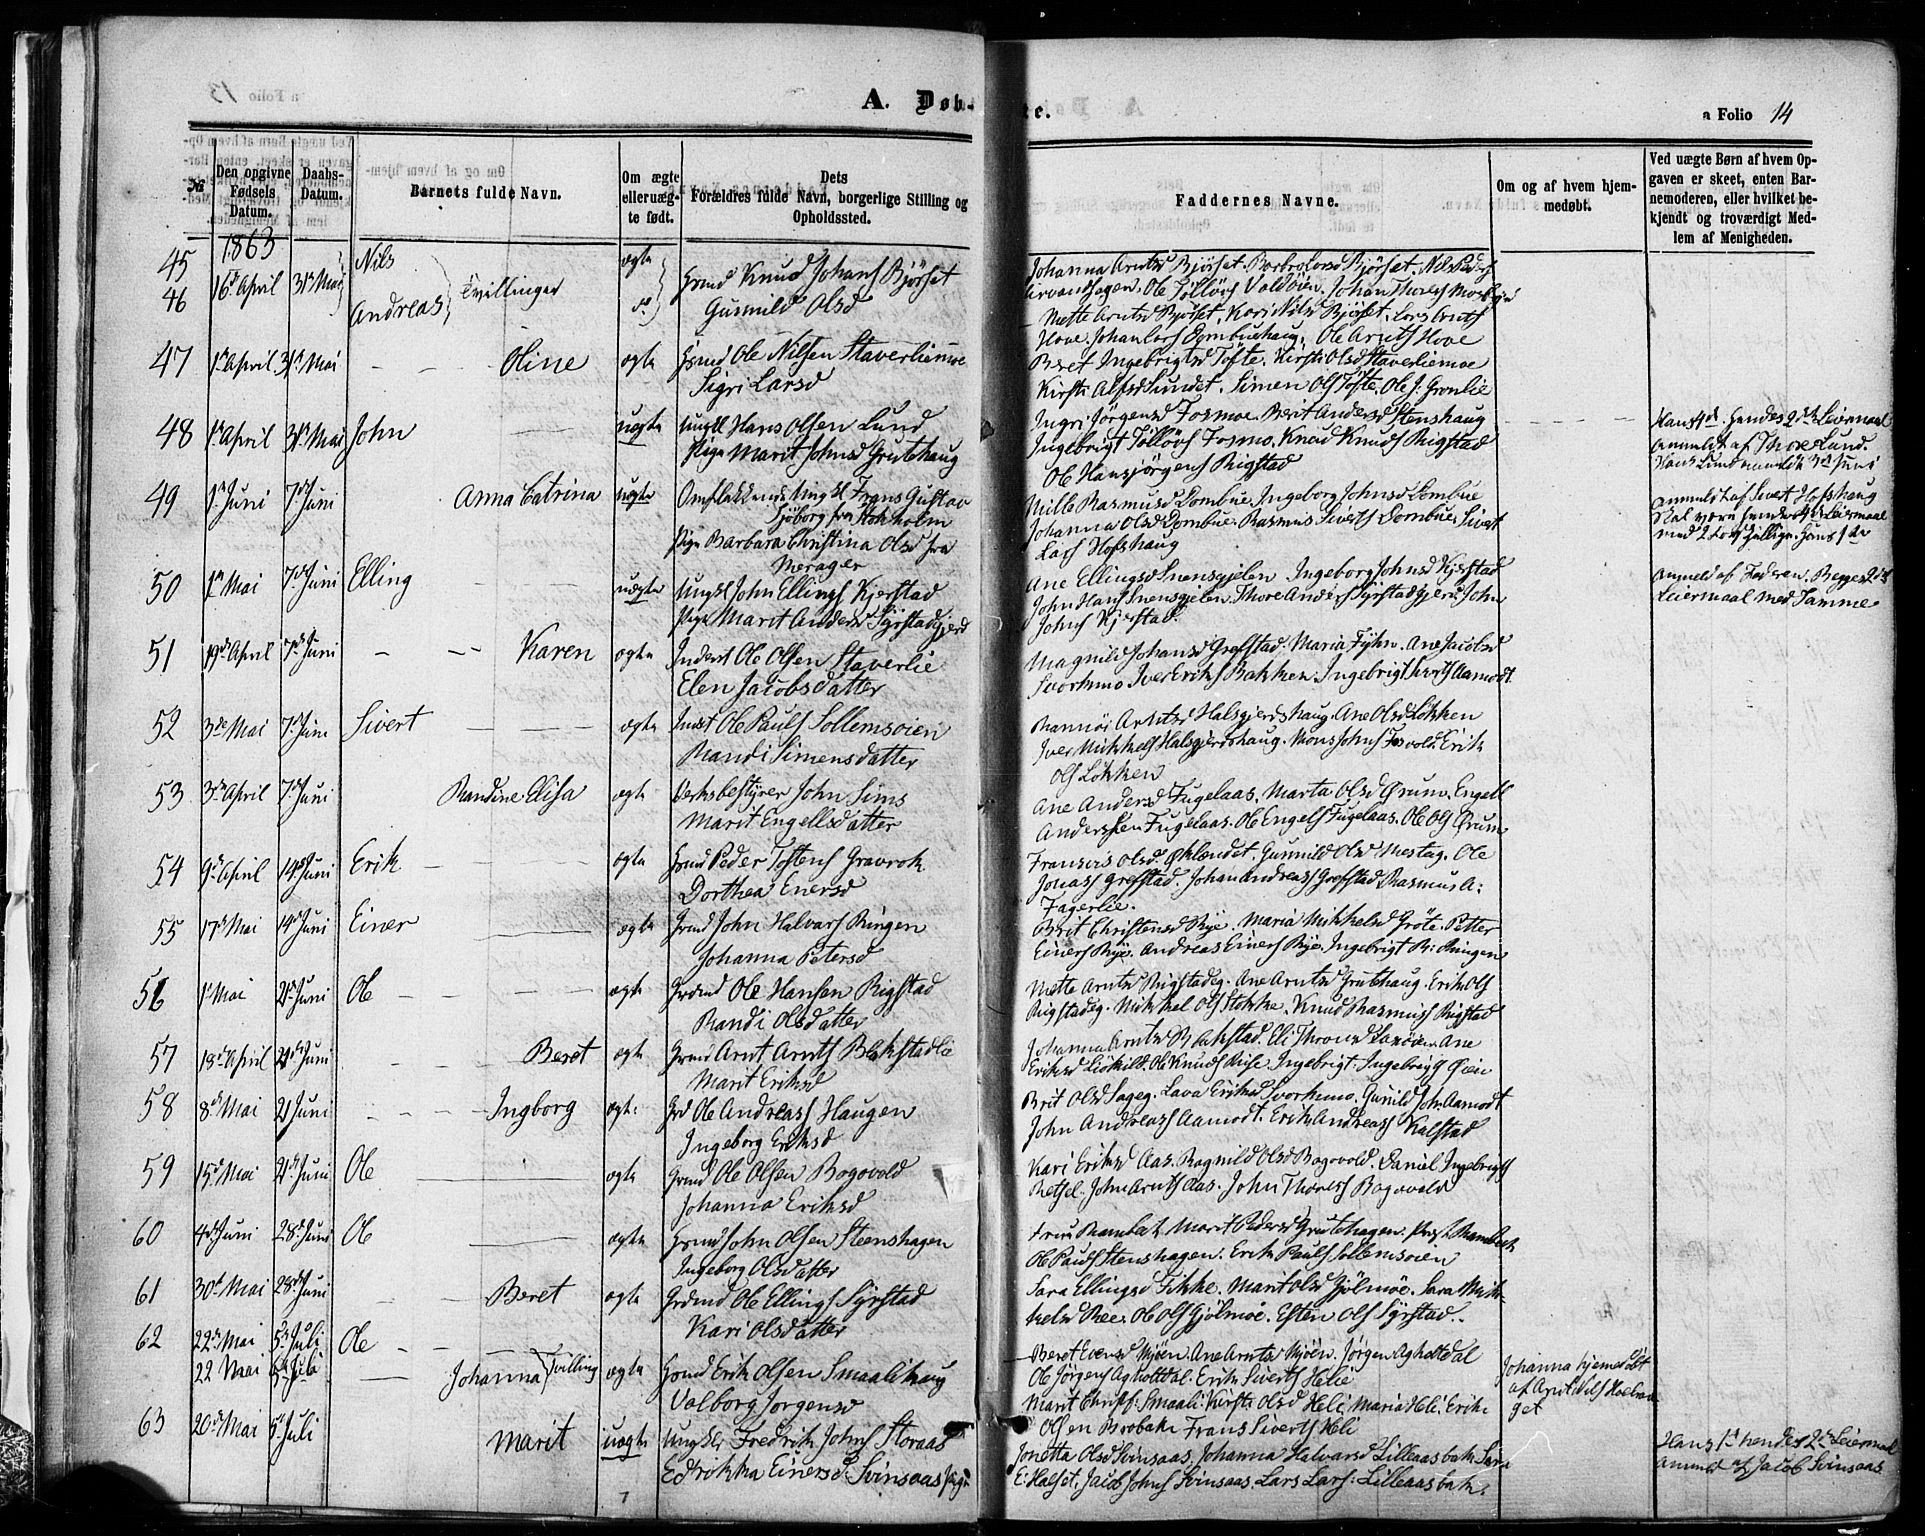 A. Døb-
te.
a Folio 14
№
Den opgivne Fødsels Datum.
Daabs-Datum.
Barnets fulde Navn.
Om ægte eller uæg-te født.
Dets Forældres fulde Navn, borgerlige Stilling og Opholdssted.
Faddernes Navne.
Om og af hvem hjem-medøbt.
Ved uægte Børn af hvem Op-gaven er skeet, enten Bar-nemoderen, eller hvilket be-kjendt og troværdigt Med-lem af Menigheden.
1863
45 Nils ægte
46 16d April 31te Mai Andreas Tvillinger do Grmd Knud Johans Bjørset
Gunnild Olsd
Johanna Arntsd Bjørset. Barbro Larsd Bjørset. Nils Peders
Ole Tølløvs Valdøien. Johan Thores
Mette Arntsd Bjørset. Kari Nilsd Bjørset. Lars Arnts
Hove. Johan Lars Dombuhaug. Ole Arnts Hove
47 1te April 31te Mai Oline ægte Hsmd Ole Nilsen Staverliemoe
Sigri Larsd
Beret Ingebrigtsd Tofte. Kirsti Olsd Staverliemoe
Kirsti Alfsd Sundet. Simen Ols Tofte. Ole J. Grønlie
48 1te April 31te Mai John uægte Ungkl Hans Olsen Lund
Pige Marit Johnsd Grutehaug
Ingri Jørgensd Fosmoe. Berit Andersd Stenshaug
Ingebrigt Tølløvs Fosmo. Knud Knuds Rigstad
Ole Hansjørgens Rigstad
Hans 4de. Hendes 2det Leiermaal
anmeldt af Thore Lund.
Hans Lund anmeldt 3de Juni
49 1te Juni 7de Juni Anna Catrina uægte Omflakkende Ungkl Frans Gustav
Sjöborg fra Stokholm
Pige Barbara Christina Olsd fra
Merager
Mille Rasmusd Dombue. Ingeborg Johnsd Dombue
Johanna Olsd Dombue. Rasmus Siverts Dombue. Sivert
Lars Hofshaug
anmeldt af Sivert Hofshaug
Skal være hendes 4de Leiermaal
med 2 forskjellige. Hans 1te
50 1te Mai 7de Juni Elling uægte Ungkl John Ellings Kjerstad
Pige Marit Andersd Syrstadgjerd
Ane Ellingsd Svensgjelen Ingeborg Johnsd Kjerstad
John Hans Svensgjelen. Thore Anders Syrstadgjerd. John
Johns Kjerstad.
Anmeld af Faderen. Begges 2det
Leiermaal med Samme
51 19de April 7de Juni Karen ægte Inderst Ole Olsen Staverlie
Elen Jacobsdatter
Magnild Johansd Grefstad. Maria Fyhn. Ane Jacobsd
Svorkmo Iver Eriks Bakken. Ingebrigt Siverts Aamodt.
52 3de Mai 7de Juni Sivert ægte Indst Ole Pauls Sollemsøien
Randi Simensdatter
Rannøi Arntsd Halsgjerdshaug. Ane Olsd Løkken
Iver Mikkels Halsgjerdshaug. Mons Johns Fosvold. Erik
Ols Løkken
53 3de April 7de Juni Randine Elisa ægte Verksbestyrer John Sims
Marit Engellsdatter
Ane Andersd Fugelaas. Marta Olsd Ørum. Engell
Andersen Fugelaas. Ole Engels Fugelaas. Ole Ols Ørum
54 9de April 14de Juni Erik ægte Hsmd Peder Tostens Gravrok
Dorthea Enersd
Olsd. Øklændet. Gunnild Olsd Mestag. Ole
Jonas Grefstad. Johan Andreas Grefstad Rasmus A:
Fagerlie.
55 17de Mai 14de Juni Einer ægte Grmd John Halvars Ringen
Johanna Petersd
Brit Christensd Rye. Maria Mikkelsd Grøte. Petter
Einers Rye. Andreas Einers Rye. Ingebrigt R: Ringen
56 1te Mai 21de Juni Ole ægte Grdmd Ole Hansen Rigstad
Randi Olsdatter
Mette Arntsd Rigstadeg. Ane Arntsd Grutehaug. Erik Ols
Rigstadeg. Mikkel Ols Stokke. Knud Rasmus Rigstad
57 18de April 21de Juni Beret ægte Grmd Arnt Arnts Blakstadlie
Marit Eriksd
Johanna Arntsd Blakstad. Eli Ane
Eriksd Liøkild. Ole Knuds Rise. Ingebrigt Ingebrigts Øien
58 8de Mai 21 Juni Ingborg ægte Grd Ole Andreas Haugen
Ingeborg Eriksd
Brit Olsd Sageg. Lava Eriksd Svorkmo. Gunild Joh. Aamodt
John Andreas Aamodt. Erik Andreas Kalstad
59 15de Mai 21de Juni Ole ægte Grmd Ole Olsen Bogovold
Johanna Eriksd
Kari Eriksd Aas. Ragnild Olsd Bogovold. Daniel Ingebrigts
John Arnts Aas. John Thores Bogovold
60 4de Juni 28de Juni Ole ægte Hsmd John Olsen Steenshagen
Ingeborg Olsdatter
Marit Pedersd Grutehagen.
Ole Pauls Stenshagen. Erik Pauls Sollemsøien
61 30te Mai 28de Juni Beret ægte Grdmd Ole Ellings Syrstad
Kari Olsdatter
Sara Ellingsd Fikke. Marit Olsd Gjølmoe. Sara Mik-
kelsd Ree. Ole Ols Gjølmoe. Esten Ols Syrstad.
62 22de Mai 5te Juli Ole
22 Mai 5te Juli Johanna Tvilling ægte Hsmd Erik Olsen Smaalihaug
Valborg Jørgensd
Beret Evensd Mjøen. Ane Arntsd Mjøen. Jørgen Agholtdal
Ole Jørgens Agholtdal. Erik Siverts Helie
Marit Christs: Smaali. Kirsti Olsd Heli. Maria Heli. Erik
Olsen Brobakk Frans Siverts Heli
Johanna hjemmedøbt
af Arnt Nils
get
63 20de Mai 5te Juli Marit uægte Ungkl Fredrik Johns Storaas
Edrikka Einersd Svinsaas Pige
Jonetta Olsd Svinsaas. Johanna Halvarsd Lilleaasbak. Sara
E: Halset. Jacob Johns Svinsaas. Lars Lars: Lilleaasbak.
Hans 1te hendes 2de Leiermaal
anmeld af Jacob Svinsaas